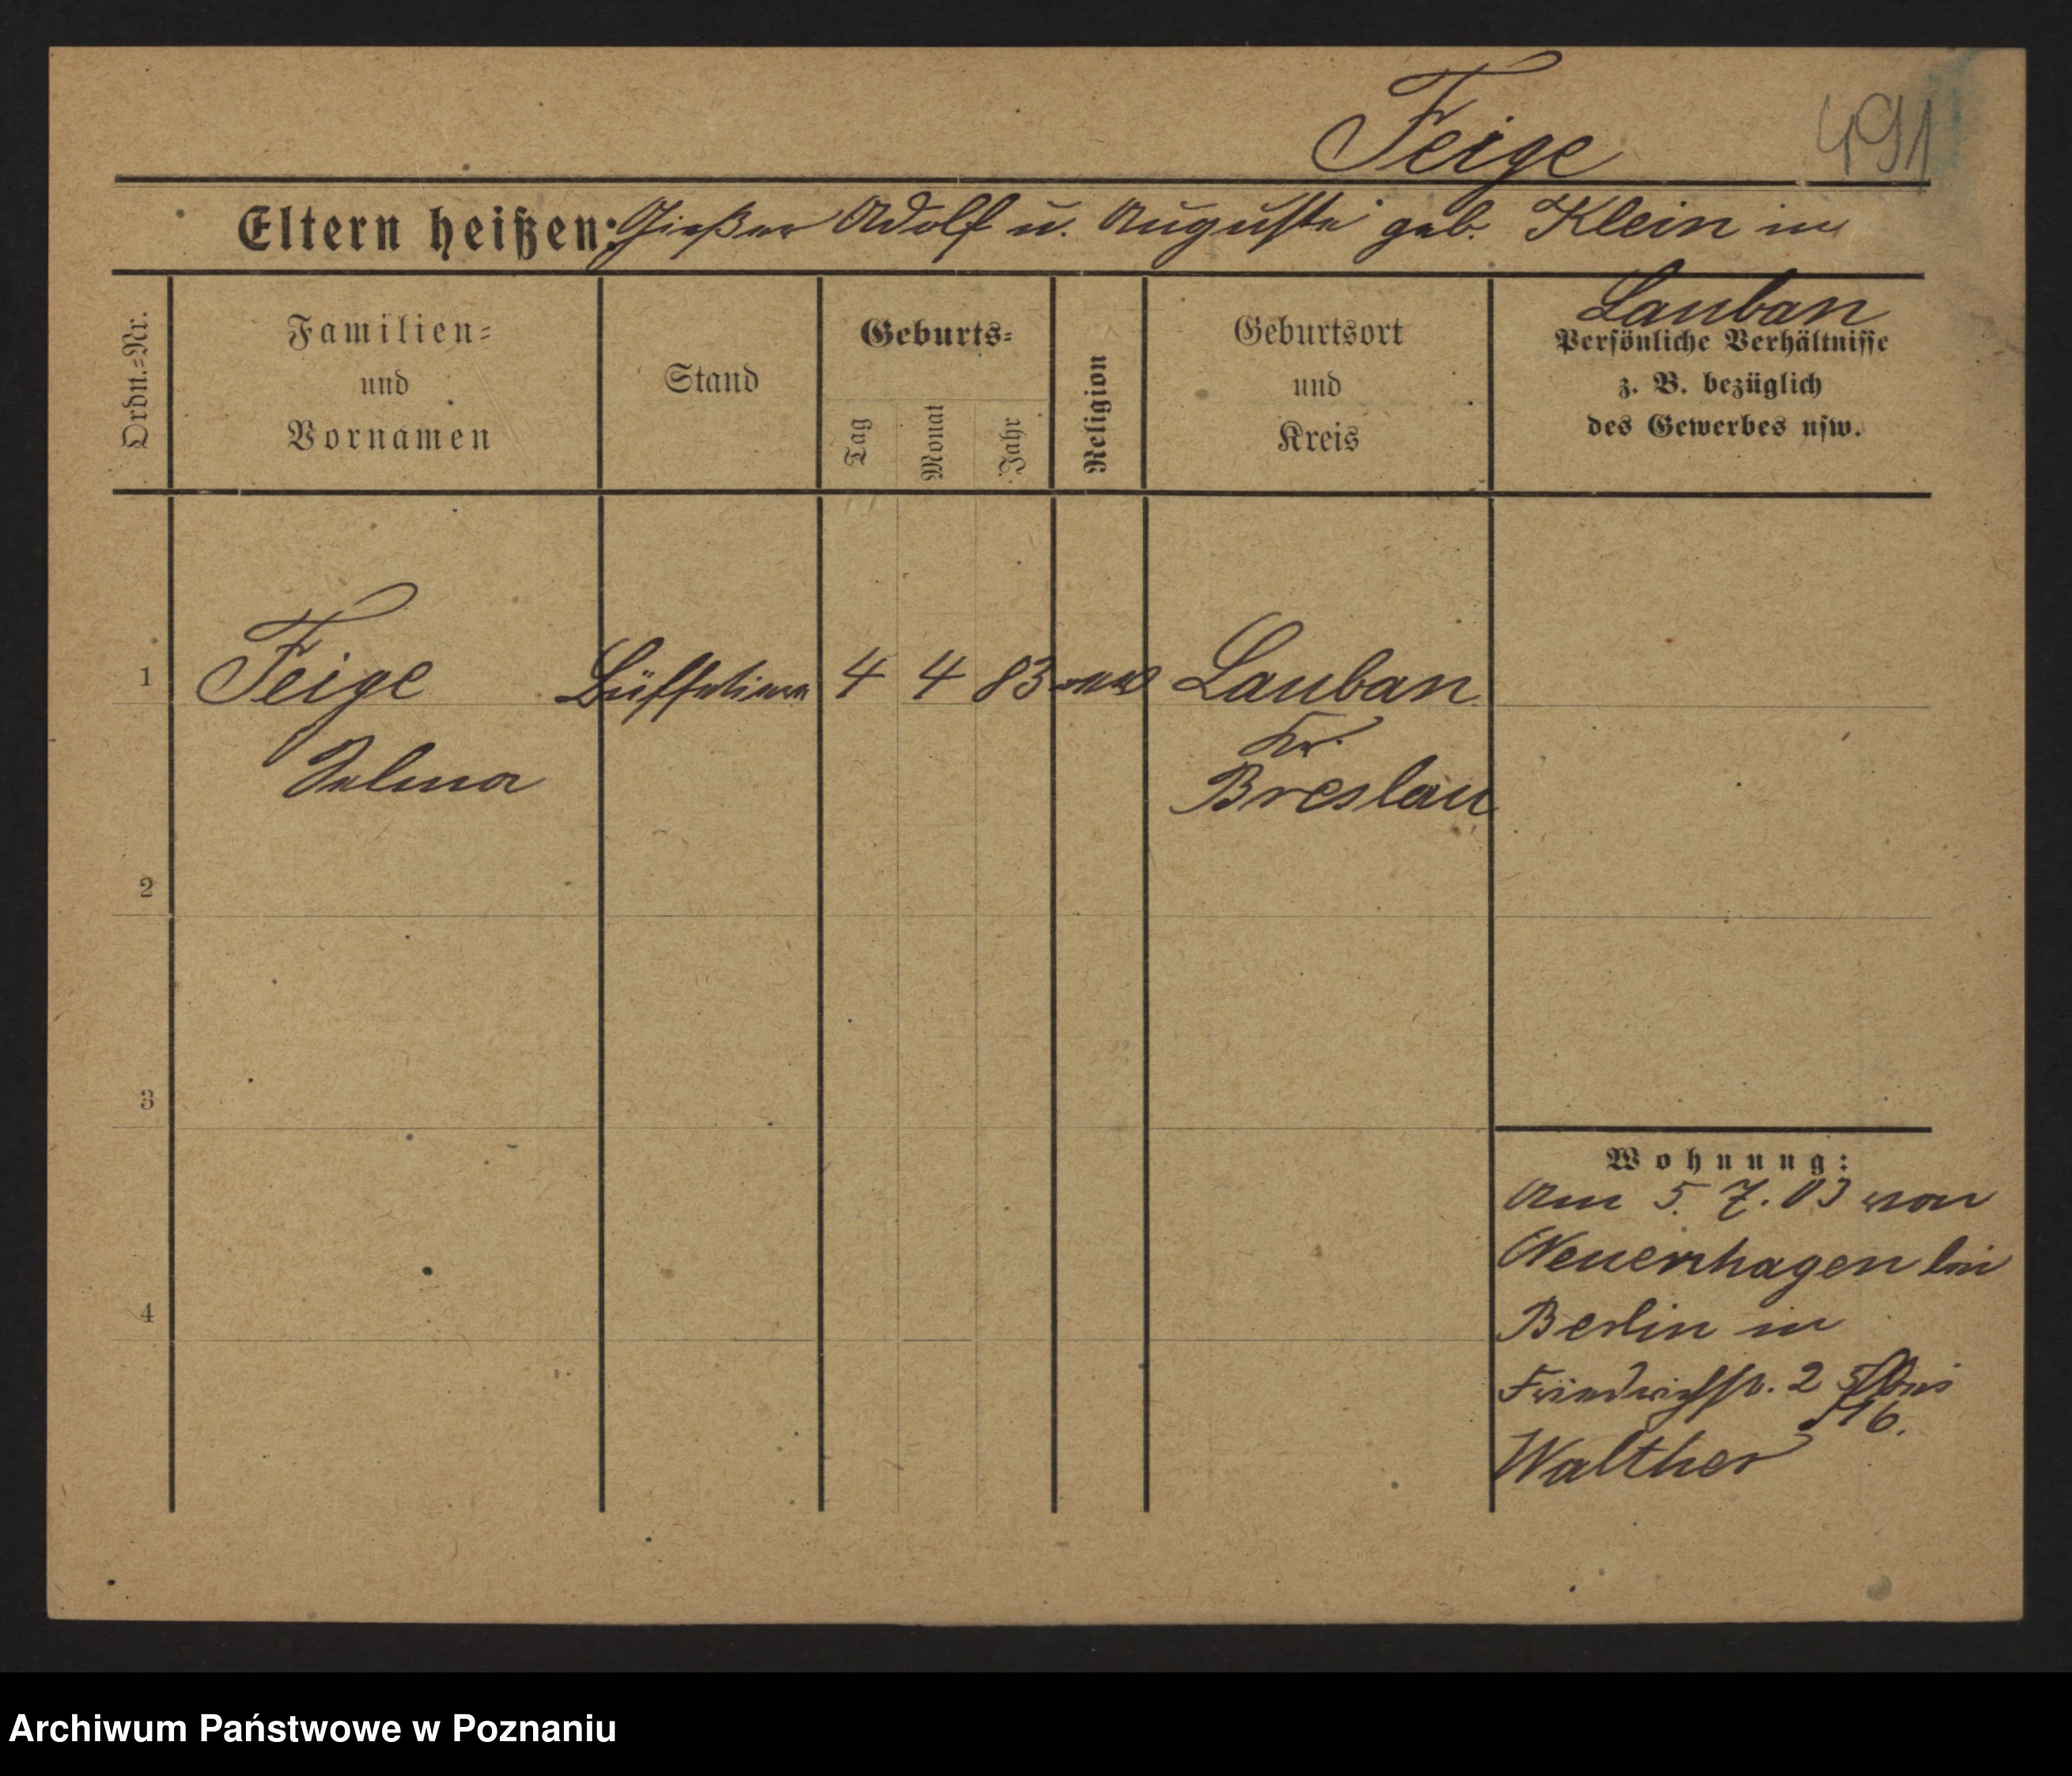 Feige
491
Eltern heißen: Gießer Adolf u. Auguste geb. Klein in
Lauban
Ordn.=Nr.
Familien=
und
Vornamen
Stand
Geburts=
Tag
Monat
Jahr
Religion
Geburtsort
und
Kreis
Persönliche Verhältnisse
z. B. bezüglich
des Gewerbes usw.
1 Feige 4 4 83 Lauban
Kr.
Selma Breslau
2
3
4
Wohnung:
Am 5. 7. 03 von
Neuenhagen bei
Berlin in
Friedrichstr. 2
16.
Walther
Archiwum Państwowe w Poznaniu